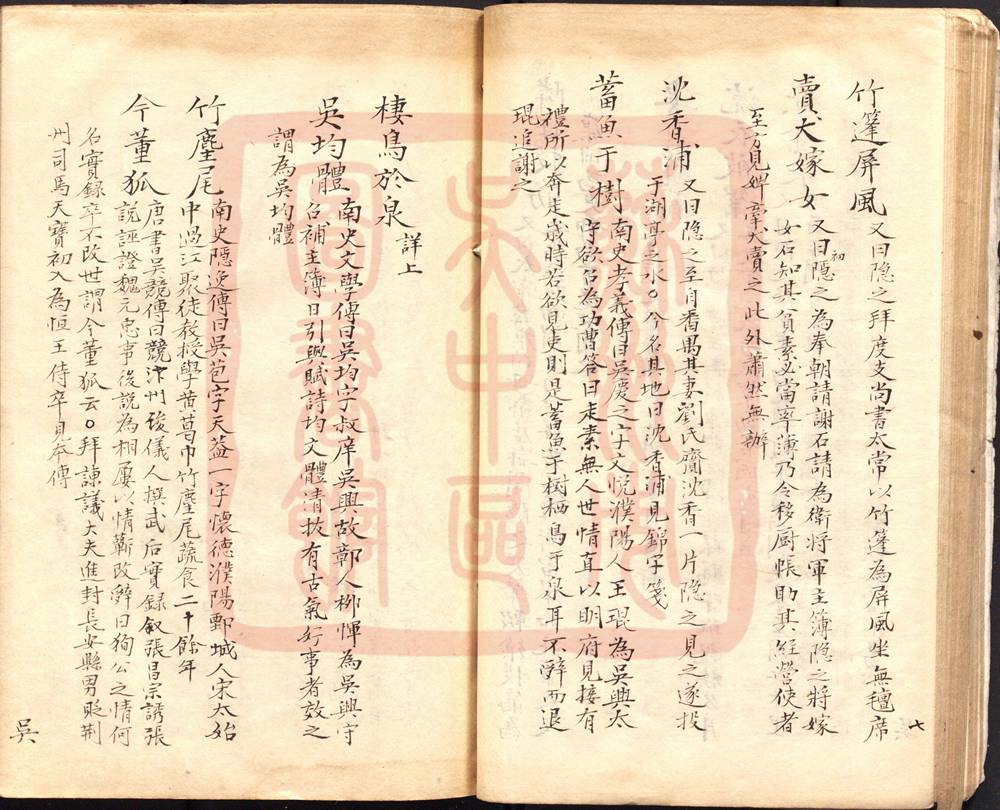 竹篷屏風　又曰隐之拜度支尚書太常以竹篷為屏風坐無氊席
賣犬嫁女　又曰隠之初為奉朝請謝石請為衛將軍主簿隐之將嫁
女石知其貧素必當率薄乃令移厨帳助其经營使者
至方見婢牽犬賣之此外蕭然無辦
沈香浦　又曰隐之至自番禺其妻劉氏齎沈香一片隐之見之遂投
于湖亭之水○今名其地曰沈香浦見錦字箋
蓄魚于樹　南史孝義傳曰吳慶之字文悦濮陽人王琨為吳興太
守欲召為功曹答曰走素無人世情直以明府見接有
禮所以奔走歲時若欲見吏則是蓄魚于樹栖鳥于泉耳不辭而退
琨追謝之
棲鳥於泉　詳上
吳均體　南史文學傳曰吳均字叔庠吳興故鄣人柳惲為吳興守
召補主簿日引與賦詩均文體清拔有古氣好事者效之
謂為吳均體
竹麈尾　南史隠逸傳曰吳苞字天葢一字懷德濮陽鄄城人宋太始
中過江聚徒教授學黄葛巾竹麈尾蔬食二十餘年
今董狐　唐書吳競傳曰競汴州琰儀人撰武后實録叙張昌宗誘張
說誣證魏元忠事後說為相屢以情蘄改辭曰狥公之情何
名實録卒不改世謂今董狐云○拜諫議大夫進封長安縣男貶荆
州司馬天寶初入為恒王侍卒見本傳
七
吳